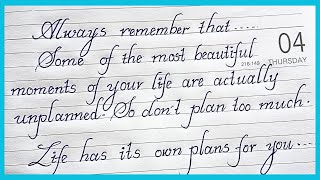 Always remember that.....
Some of the most beautiful
04
THURSDAY
moments of your life are actually
unplanned. So don't plan too much.
Life has its own plans for you...